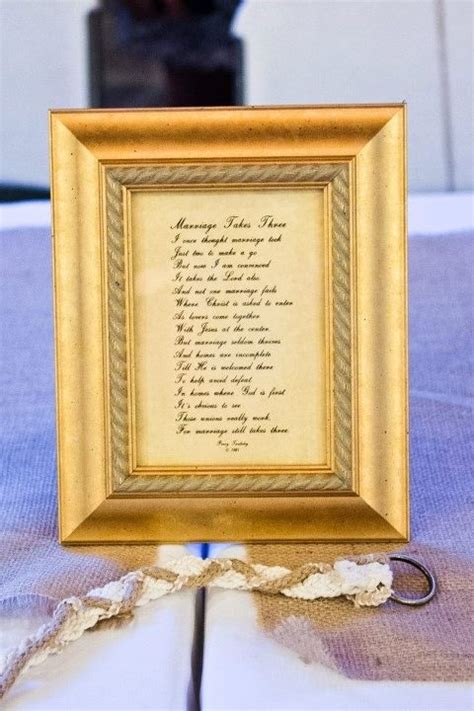 Marriage Takes Three
I once thought marriage took
Just two to make a go
But now I am convinced
It takes the Lord also.
And not one marriage fails
Where Christ is asked to enter
As lovers come together
With Jesus at the center.
But marriage seldom thrives
And homes are incomplete
Till He is welcomed there
To help avoid defeat.
In homes where God is first
It's obvious to see
Those unions really work,
For marriage still takes three.
Perry Tanksley